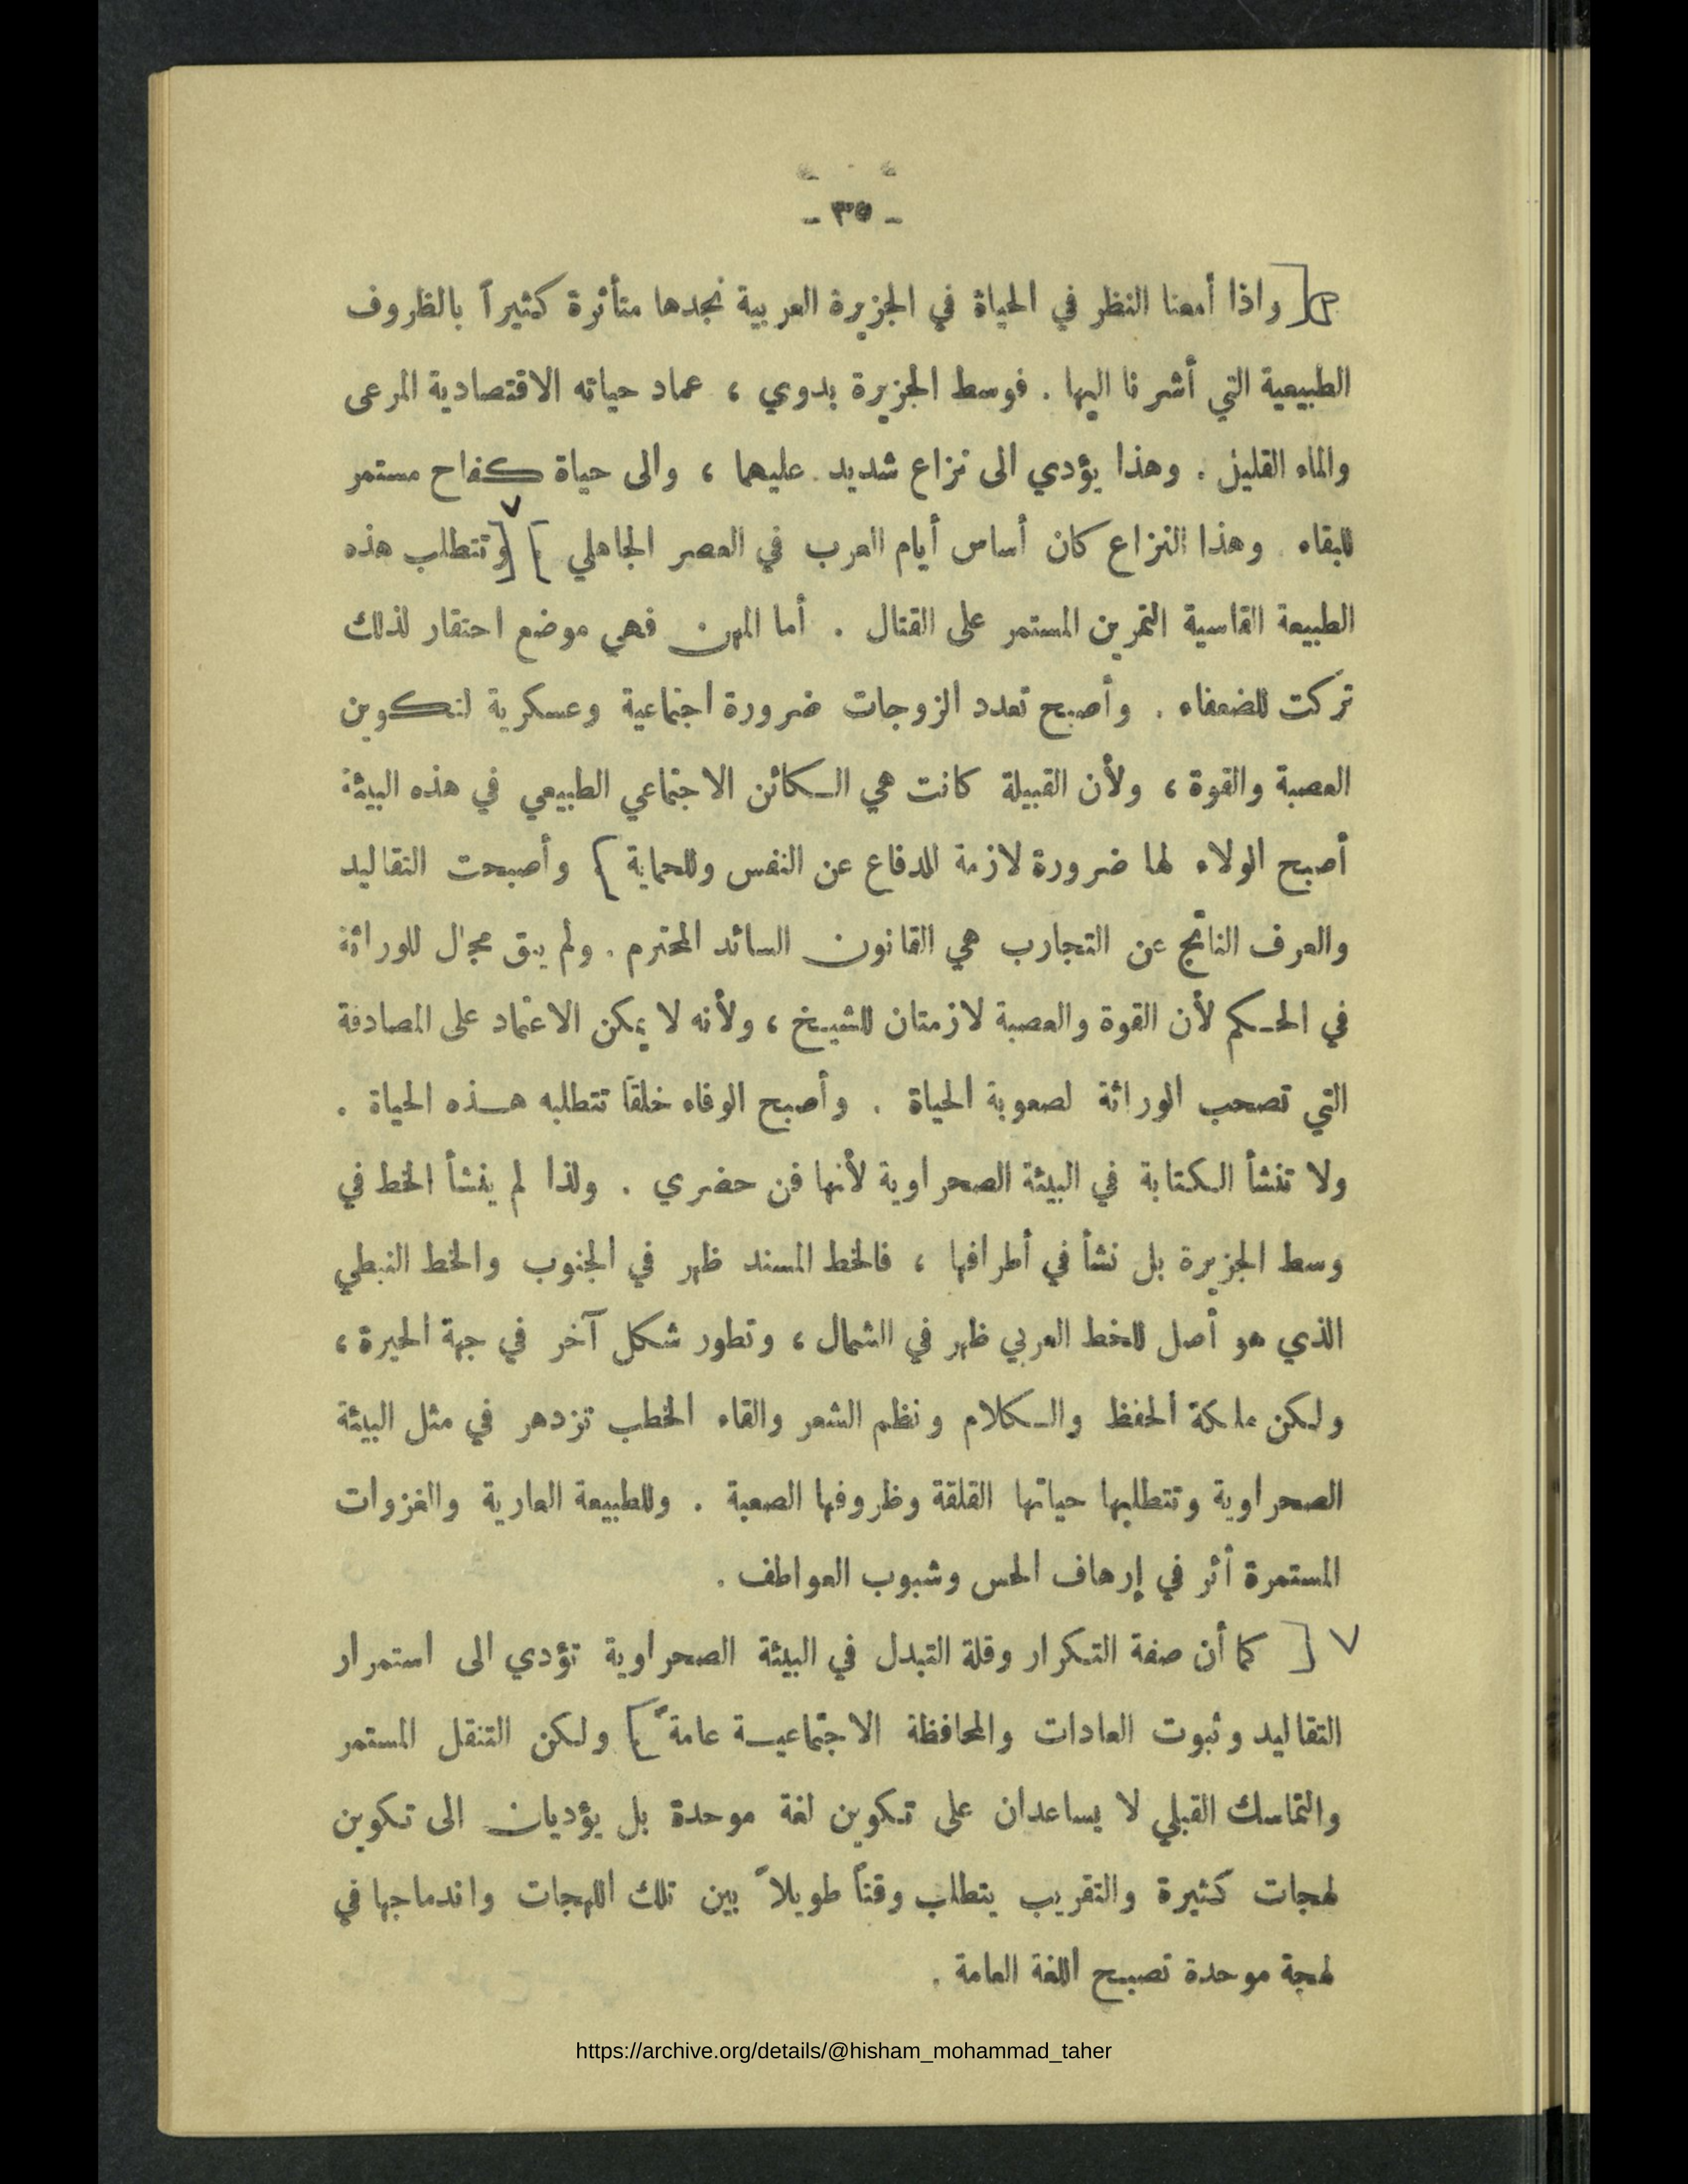 - ٣٥ -
واذا أمعنا النظر في الحياة في الجزيرة العربية نجدها متأثرة كثيراً بالظروف
الطبيعية التي أشرنا اليها . فوسط الجزيرة بدوي ، عماد حياته الاقتصادية المرعى
والماء القليل . وهذا يؤدي الى نزاع شديد عليهما ، والى حياة كفاح مستمر
للبقاء . وهذا النزاع كان أساس أيام العرب في العصر الجاهلي . وتتطلب هذه
الطبيعة القاسية التمرين المستمر على القتال . أما المهن فهي موضع احتقار لذلك
تركت للضعفاء . وأصبح تعدد الزوجات ضرورة اجتماعية وعسكرية لتكوين
العصبة والقوة ، ولأن القبيلة كانت هي الكائن الاجتماعي الطبيعي في هذه البيئة
أصبح الولاء لها ضرورة لازمة للدفاع عن النفس وللحماية . وأصبحت التقاليد
والعرف الناتج عن التجارب هي القانون السائد المحترم . ولم يبق مجال للوراثة
في الحكم لأن القوة والعصبة لازمتان للشيخ ، ولأنه لا يمكن الاعتماد على المصادفة
التي تصحب الوراثة لصعوبة الحياة . وأصبح الوفاء خلقاً تتطلبه هذه الحياة .
ولا تنشأ الكتابة في البيئة الصحراوية لأنها فن حضري . ولذا لم ينشأ الخط في
وسط الجزيرة بل نشأ في أطرافها ، فالخط المسند ظهر في الجنوب والخط النبطي
الذي هو أصل للخط العربي ظهر في الشمال ، وتطور شكل آخر في جهة الحيرة ،
ولكن ملكة الحفظ والكلام ونظم الشعر والقاء الخطب تزدهر في مثل البيئة
الصحراوية وتتطلبها حياتها القلقة وظروفها الصعبة . وللطبيعة العارية والغزوات
المستمرة أثر في إرهاف الحس وشبوب العواطف .
كما أن صفة التكرار وقلة التبدل في البيئة الصحراوية تؤدي الى استمرار
التقاليد وثبوت العادات والمحافظة الاجتماعية عامةً . ولكن التنقل المستمر
والتماسك القبلي لا يساعدان على تكوين لغة موحدة بل يؤديان الى تكوين
لهجات كثيرة والتقريب يتطلب وقتاً طويلاً بين تلك اللهجات واندماجها في
لهجة موحدة تصبح اللغة العامة .
https://archive.org/details/@hisham_mohammad_taher